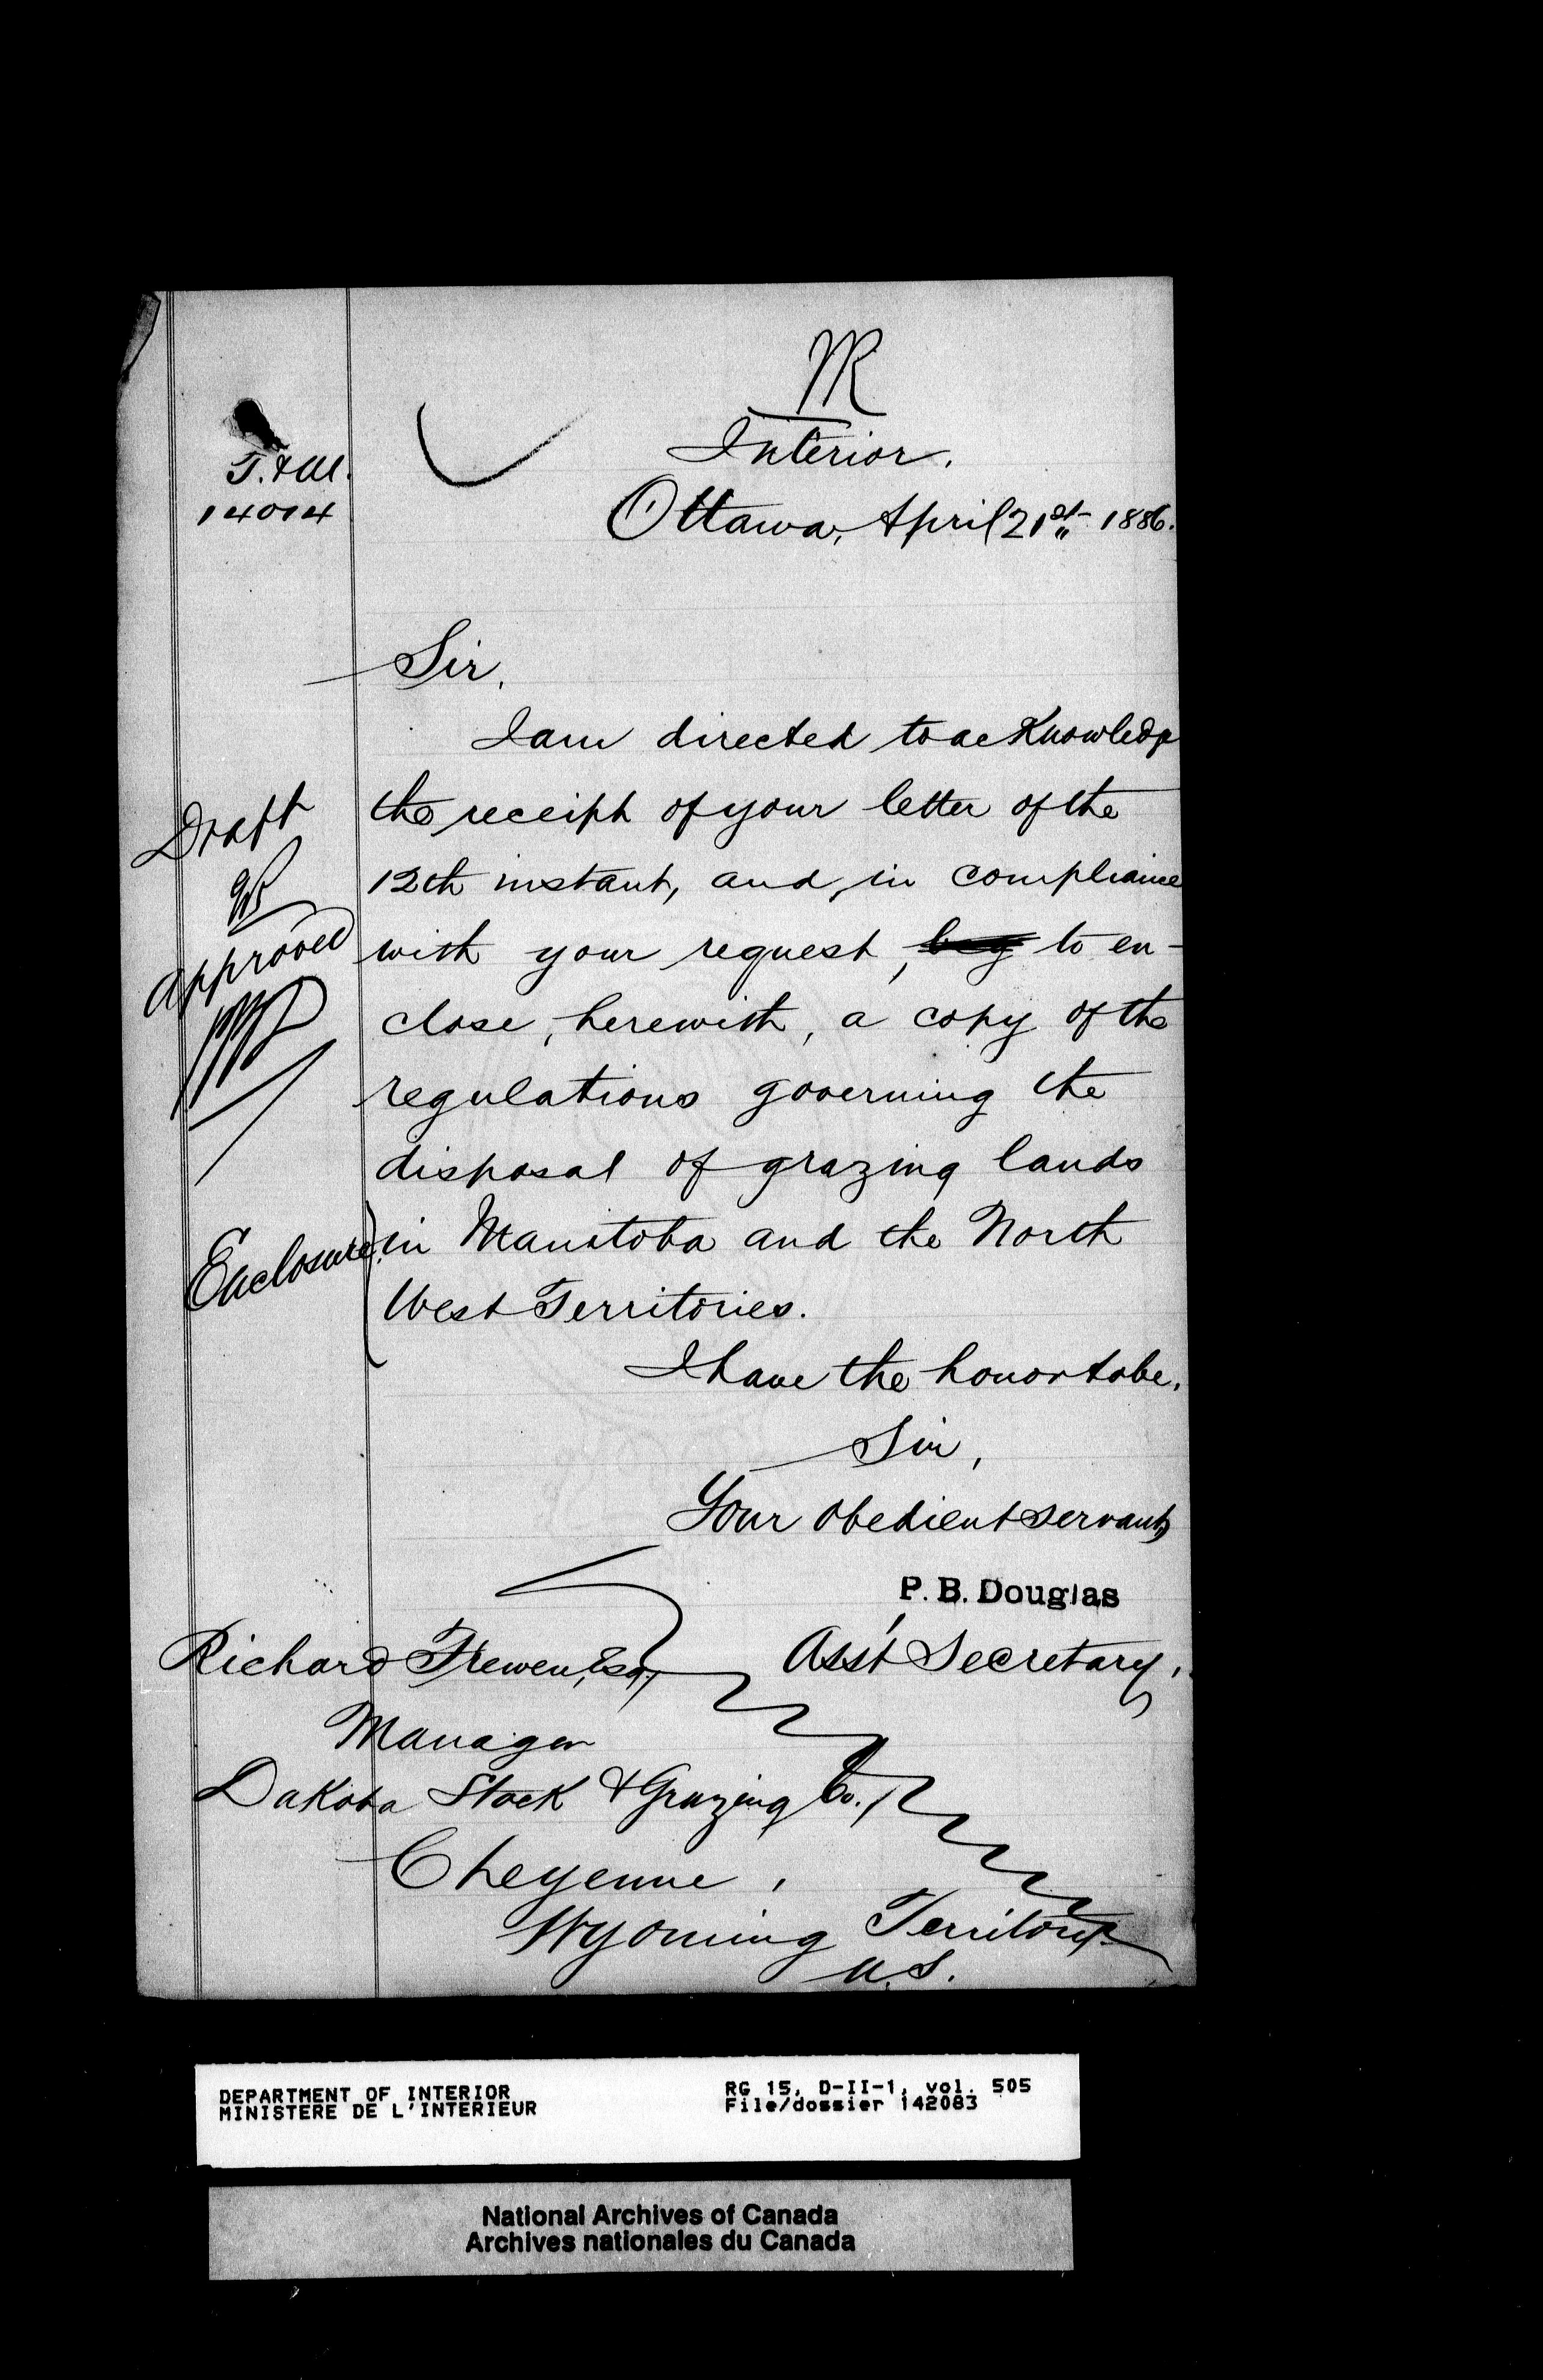 Interior.
T. & M.
14014
Ottawa, April 21st 1886.
Sir,
I am directed to acknowledge
the receipt of your letter of the
12th instant, and, in compliance
with your request, beg to en-
close, herewith, a copy of the
regulations governing the
disposal of grazing lands
in Manitoba and the North
West Territories.
Draft
Approved
Enclosure.
I have the honor to be,
Sir,
Your obedient servant,
P. B. Douglas
Ass't Secretary,
Richard Frewen, Esq.,
Manager
Dakota Stock & Grazing Co.,
Cheyenne,
Wyoming Territory
U.S.
DEPARTMENT OF INTERIOR
MINISTERE DE L'INTERIEUR
RG 15, D-II-1, vol. 505
File/dossier 142083
National Archives of Canada
Archives nationales du Canada